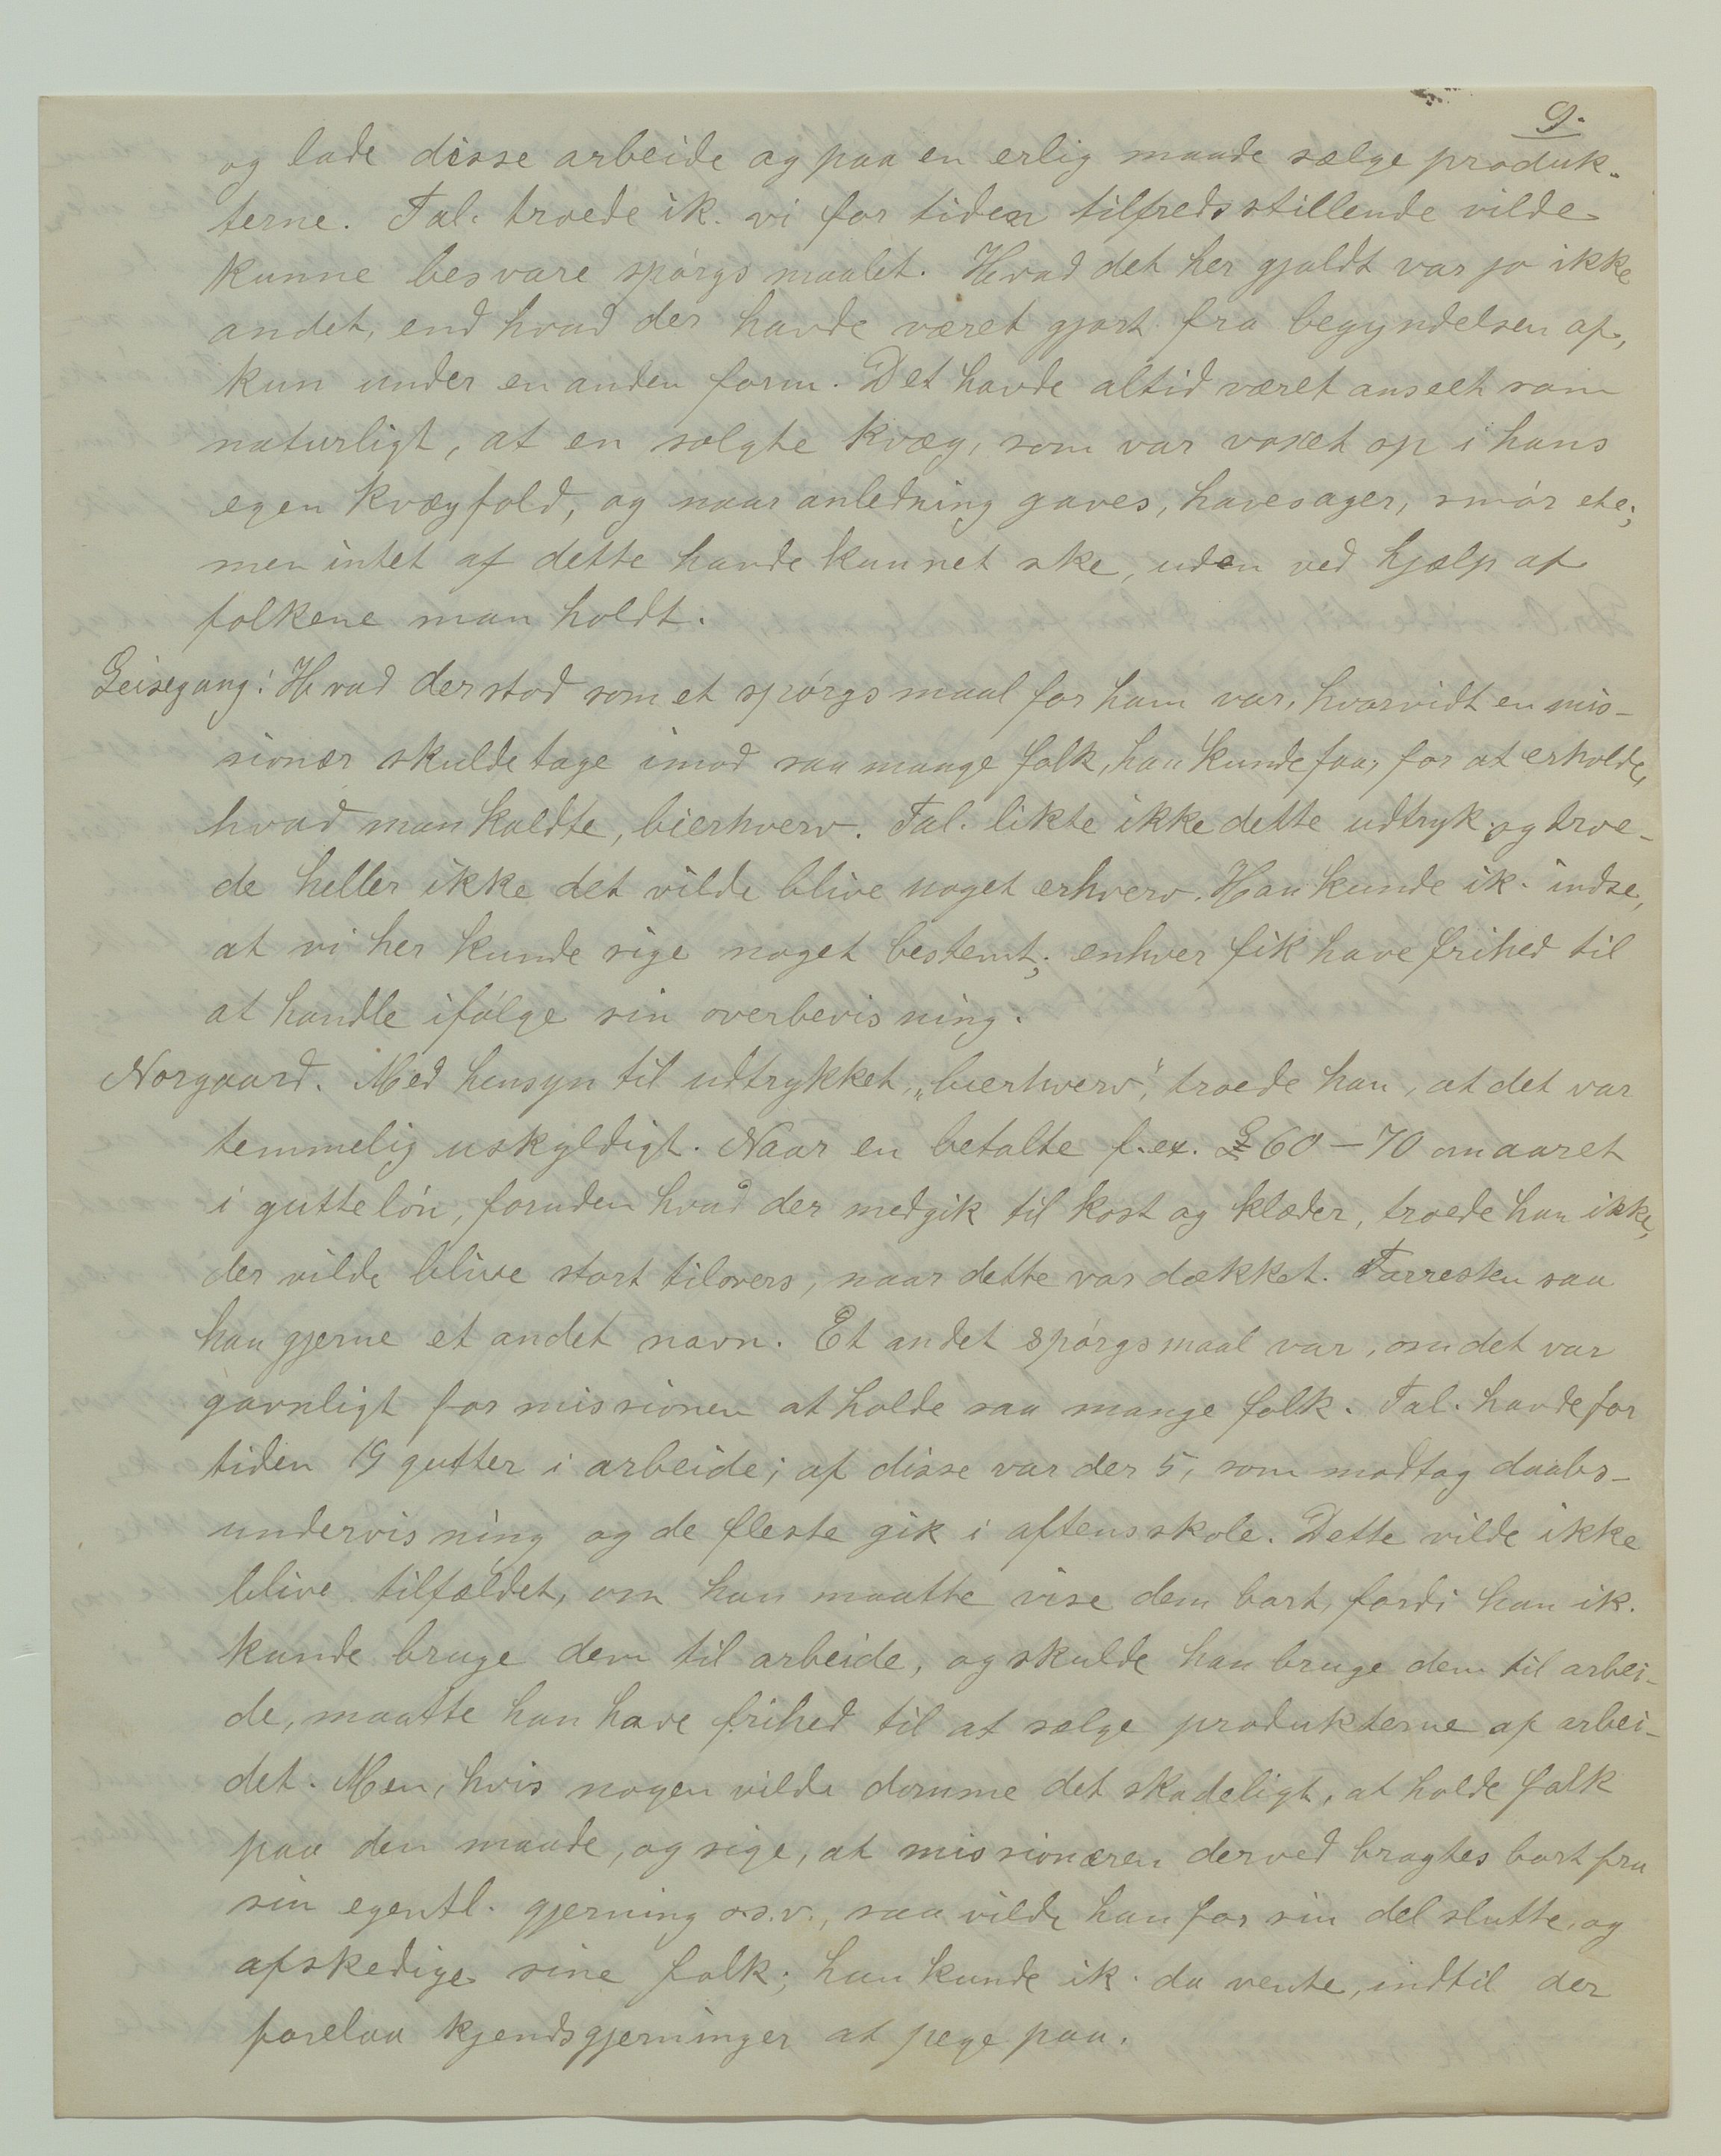 9.
og lade disse arbeide og paa en erlig maade sælge produk-
terne. Tal. troede ik. vi for tiden tilfredsstillende vilde
kunne besvare spórgsmaalet. Hvad det her gjaldt var jo ikke
andet, end hvad der havde været gjort fra begyndelsen af,
kun under en anden form. Det havde altid været anseet som
naturligt, at en solgte kvæg, som var voxet op i hans
egen kvægfold, og naar anledning gaves, havesager, smór etc;
men intet af dette havde kunnet ske, uden ved hjælp af
folkene man holdt.
Leisegang: Hvad der stod som et spórgsmaal for ham var, hvorvidt en mis-
sionær skulde tage imod saa mange folk, han kunde faa, for at erholde,
hvad man kaldte, bierhverv. Tal. likte ikke dette udtryk og troe-
de heller ikke det vilde blive noget erhverv. Han kunde ik. indse,
at vi her kunde sige noget bestemt; enhver fik have frihed til
at handle ifólge sin overbevisning.
Norgaard. Med hensyn til udtrykket, „bierhverv", troede han, at det var
temmelig uskyldigt. Naar en betalte f. ex. £ 60-70 om aaret
i guttelón, foruden hvad der medgik til kost og klæder, troede han ikke,
der vilde blive stort tilovers, naar dette var dækket. Forresten saa
han gjerne et andet navn. Et andet spórgsmaal var, om det var
gavnligt for missionen at holde saa mange folk. Tal. havde for
tiden 19 gutter i arbeide; af disse var der 5, som modtog daabs-
undervisning og de fleste gik i aftensskole. Dette vilde ikke
blive tilfældet, om han maatte vise dem bort, fordi han ik.
kunde bruge dem til arbeide, og skulde han bruge dem til arbei-
de, maatte han have frihed til at sælge produkterne af arbei-
det. Men, hvis nogen vilde dømme det skadeligt, at holde folk
paa den maade, og sige, at missionæren derved bragtes bort fra
sin egentl. gjerning o.s.v., saa vilde han for sin del slutte, og
afskedige sine folk; han kunde ik. da vente, indtil der
forelaa kjendsgjerninger at pege paa.